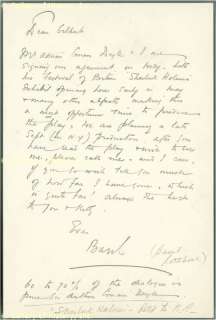 Dear Gilbert
Adrian Conan Doyle & I are
signing our agreement on With
the Festival of Britain "Sherlock Holmes"
Exhibit opening here early in May
& many other aspects making this
a most opportune time to produce
the play. We are planning a late
Sept. (N.Y.) production after you
have read the play & wish to see
me, please cable me – and I come,
if you so wish tell you much
of how far I have gone, which
is quite far! always the best
to you & Kitty.
Ever
Basil
(Basil
Rathbone)
60 to 70% of the dialogue is
Conan Doyle
"Sherlock Holmes"